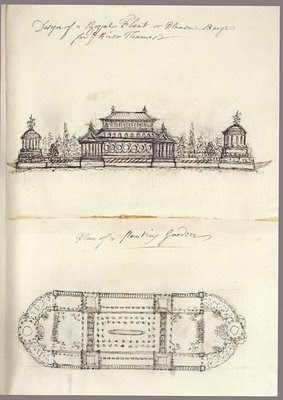 Design of a Royal Float or Pleasure Barge
for ye River Thames
Plan of a floating Garden